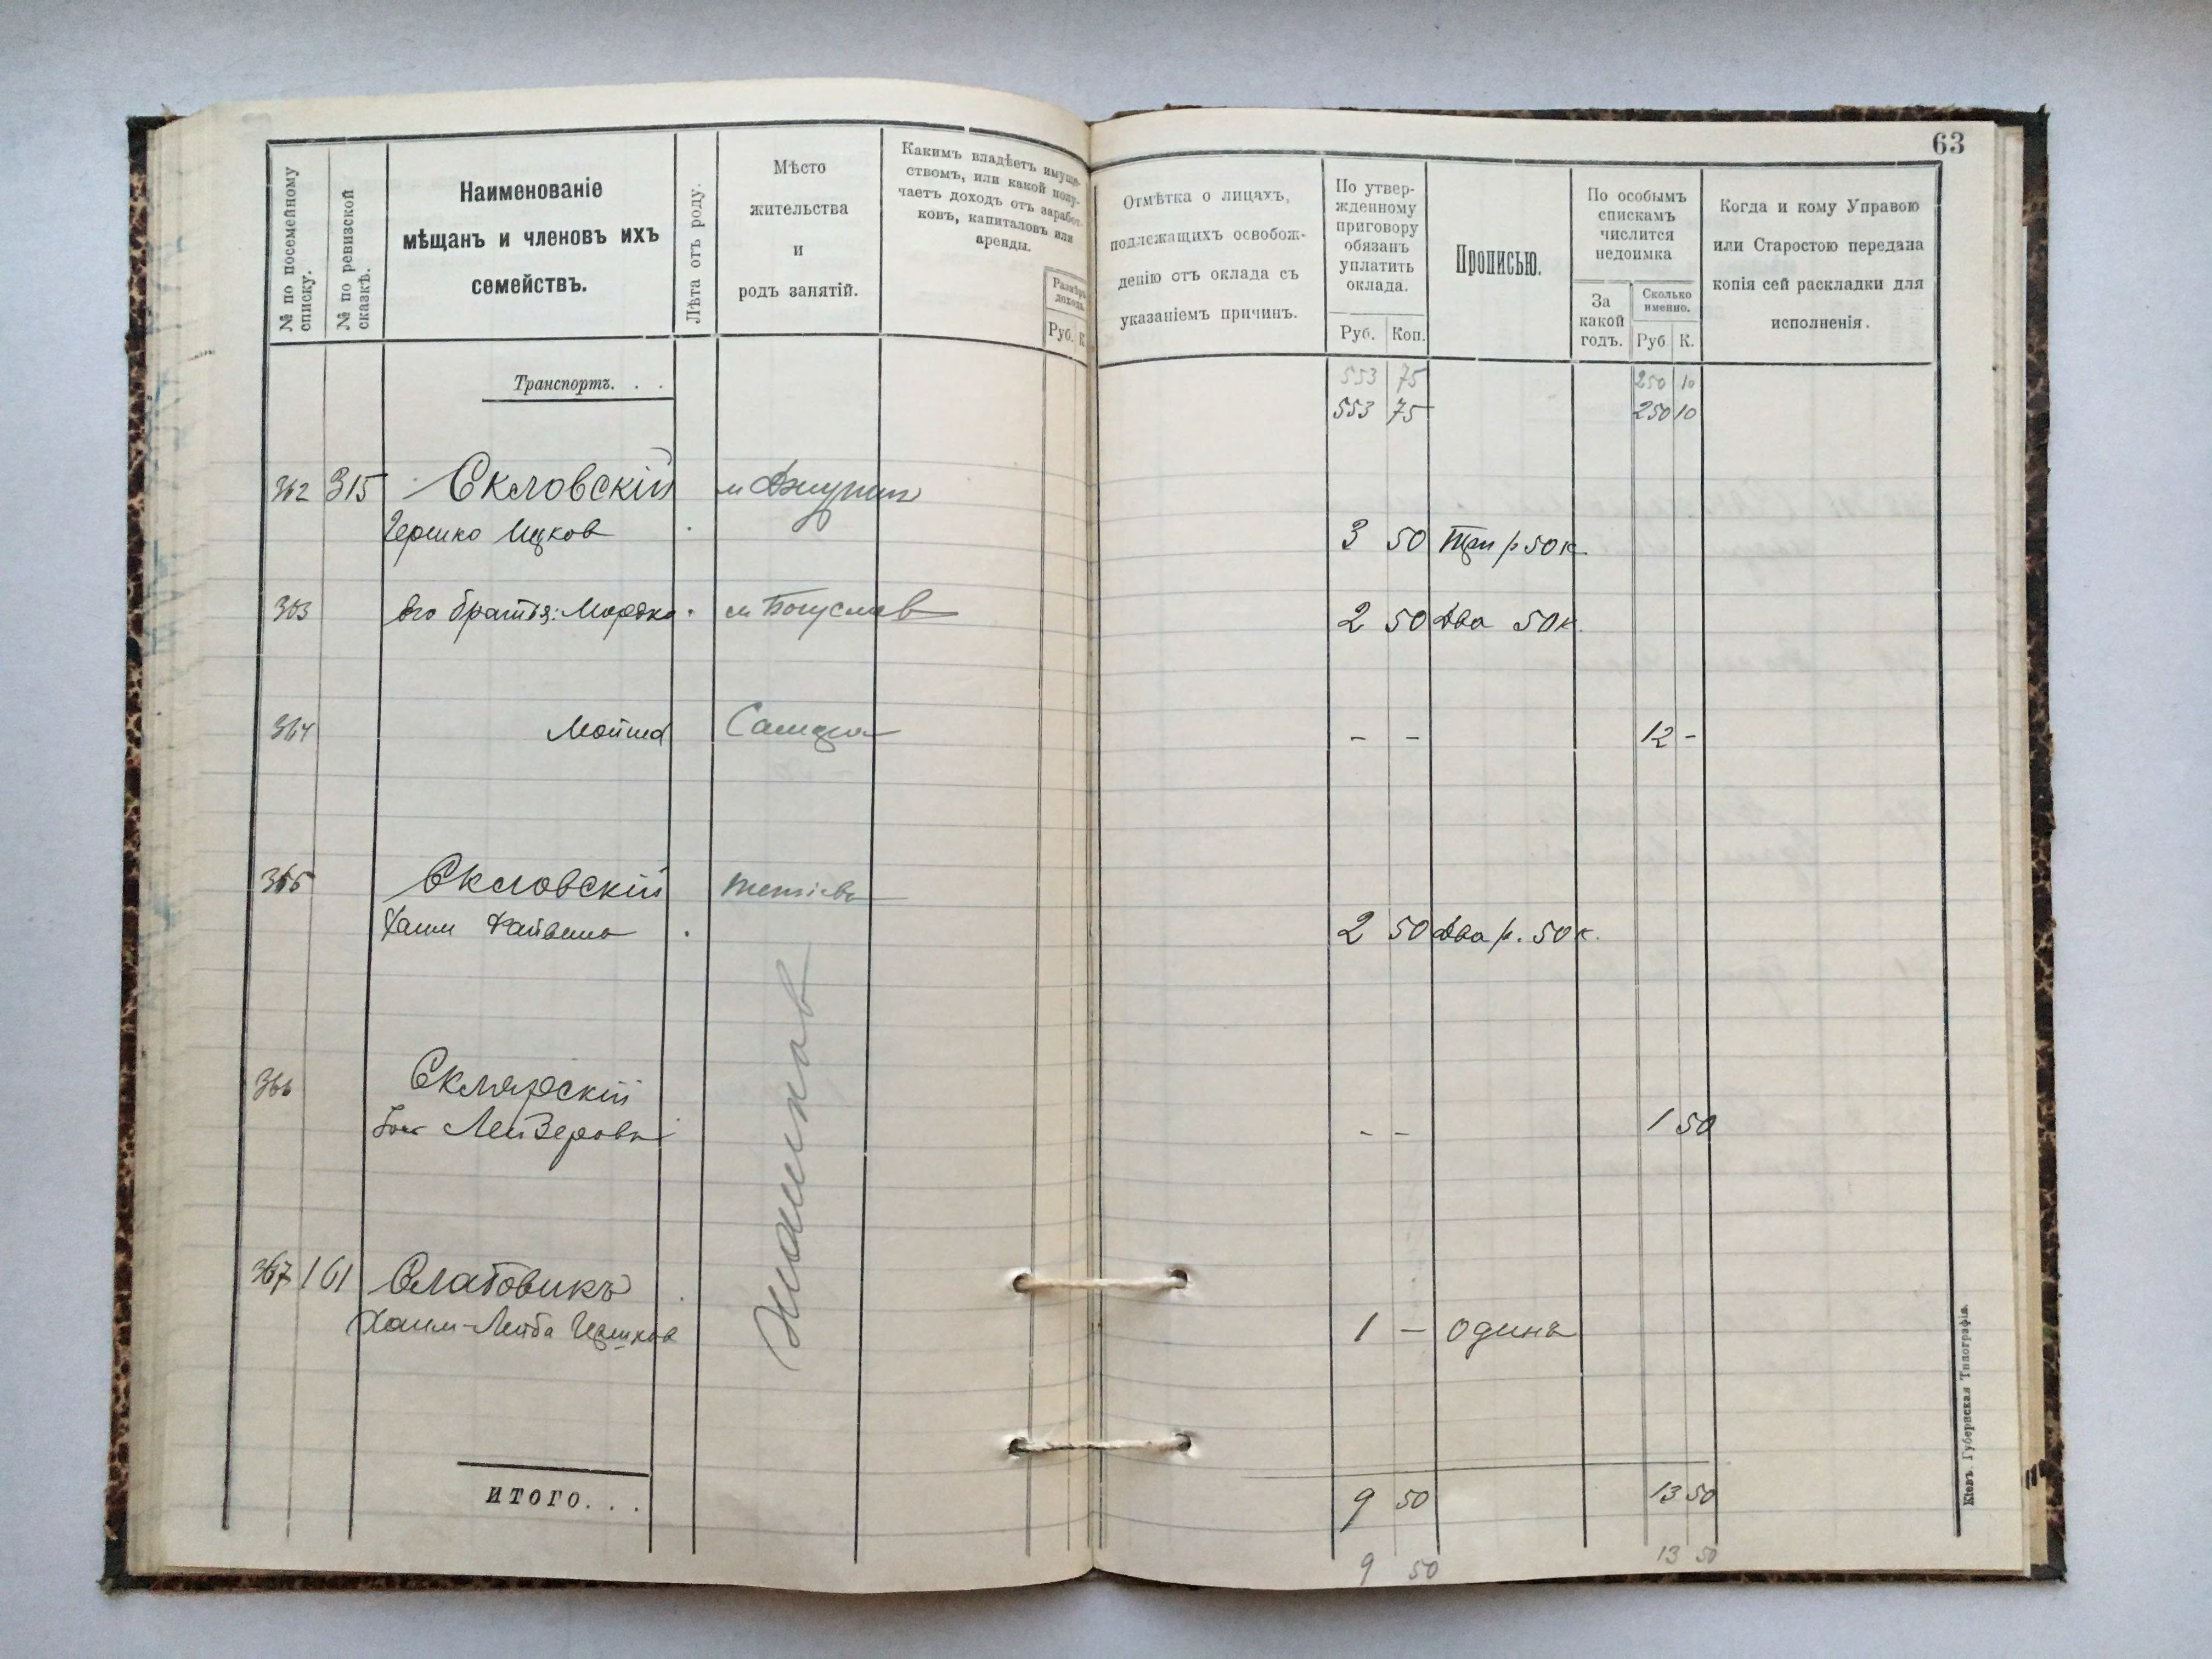 63
№ по посемейному списку.
№ по ревизской сказкѣ.
Наименованіе
мѣщанъ и членовъ ихъ
семействъ.
Лѣта отъ роду.
Мѣсто
жительства
и
родъ занятій.
Какимъ владѣетъ имуще-
ствомъ, или какой полу-
чаетъ доходъ отъ заработ-
ковъ, капиталовъ или
аренды.
Размѣръ
дохода.
Руб. К.
Отмѣтка о лицахъ,
подлежащихъ освобож-
денію отъ оклада съ
указаніемъ причинъ.
По утвер-
жденному
приговору
обязанъ
уплатить
оклада.
Руб. Коп.
Прописью.
По особымъ
спискамъ
числится
недоимка
За
какой
годъ.
Сколько
именно.
Руб К.
Когда и кому Управою
или Старостою передана
копія сей раскладки для
исполненія.
Транспортъ. . .
553 75 250 10
553 75 250 10
362 315 Скловскій м
Гершко Ицков 3 50 Три р 50 к
363 его братья: Мордко м Богуслав 2 50 Два 50 к.
364 Мойша - - 12 -
365 Скловскій
Хаим 2 50 Два р. 50 к.
366 Склярскій
Лейзеровъ - - 1 50
Жашков
367 161 Слабовикъ
Хаим-Лейба 1 - один
ИТОГО. . . 9 50 13 50
9 50 13 50
Кіевъ. Губернская Типографія.